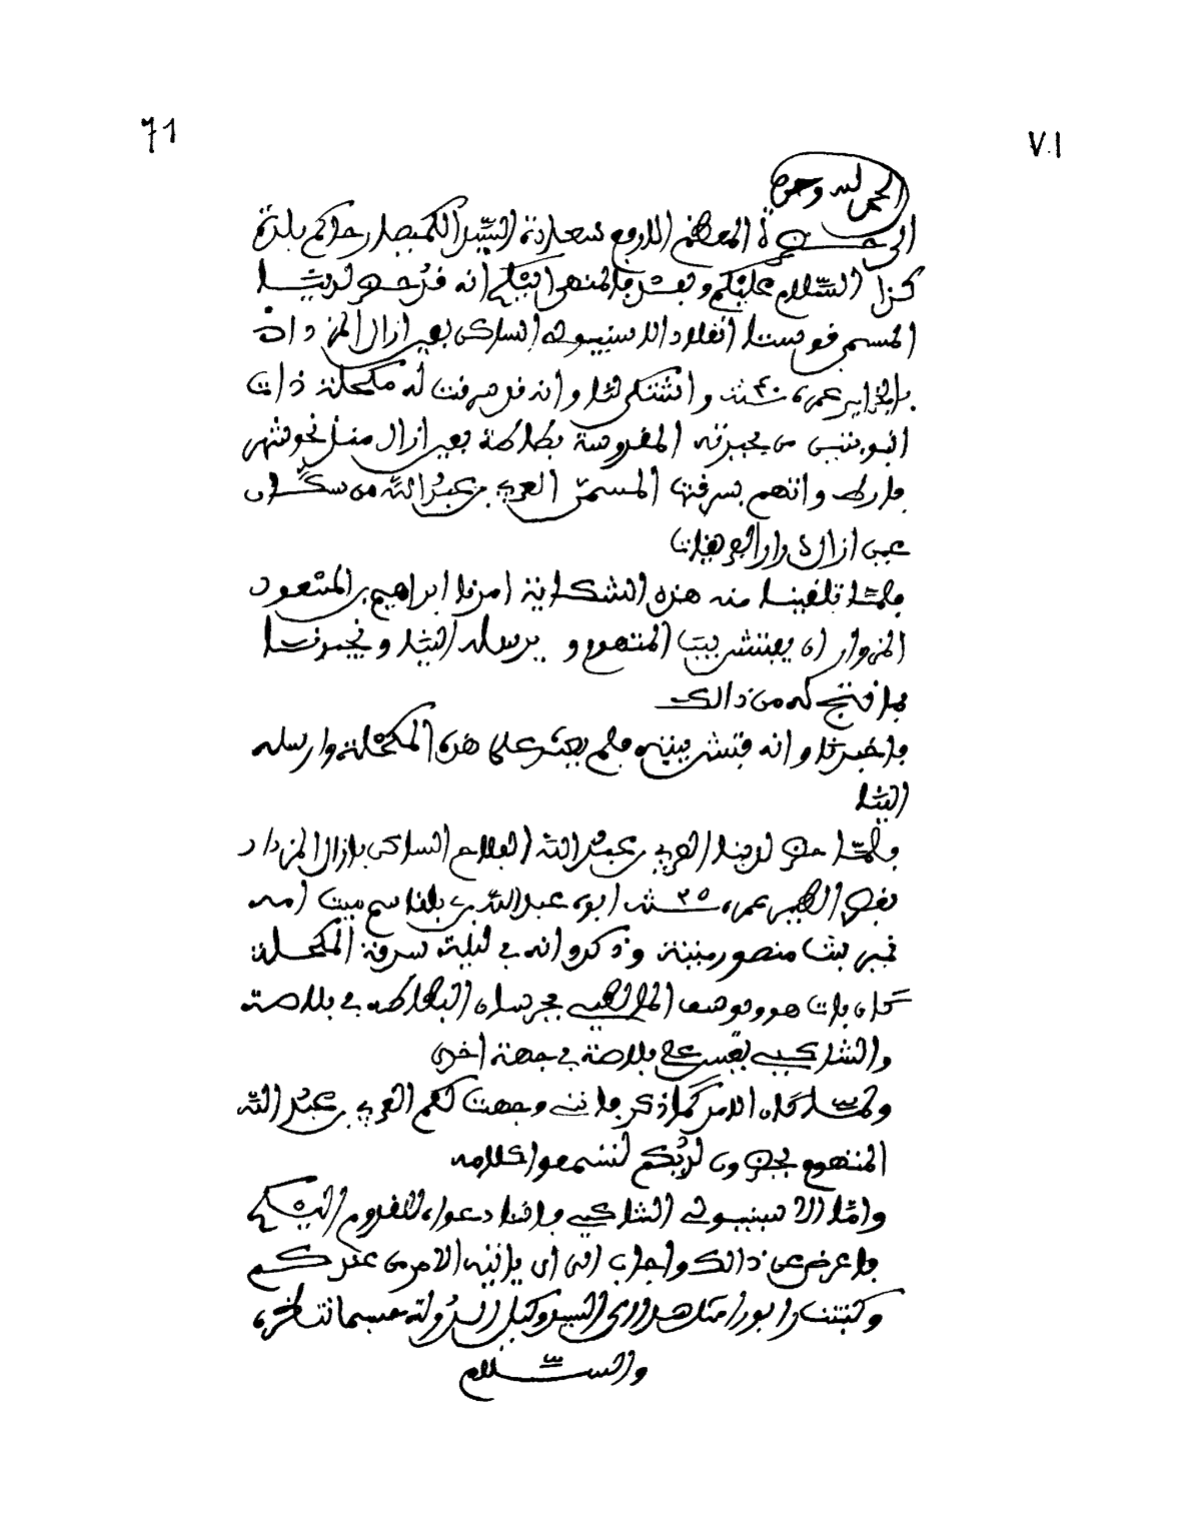 71
V.I
الحمد لله وحده
الى حضرة المعظم الارفع سعادة السيد الكمصار حاكم بلدة
كذا السلام عليكم وبعد فالمنهى اليكم انه قد حضر لدينا
المسمى الساكن بعين ازال المزداد
بالجزاير عمره ٤٠ سنة واشتكى لنا وانه قد سرقت له مكحلة ذات
من يحيرته المغروسة بطاطة بعين ازال منذ نحو شهر
فارط واتهم بسرقتها المسمى العربي بن عبد الله من سكان
عين ازال دوار
فلما تلقينا منه هذه الشكاية امرنا ابراهيم بن المسعود
المزوار ان يفتش بيت المتهوم و يرسله الينا ويخبرنا
بما نتج له من ذالك
فاخبرنا وانه فتش بيته فلم يعثر على هذه المكحلة وارسله
الينا
فلما حضر لدينا العربي بن عبد الله الفلاح الساكن بازال المزداد
عمره ٣٥ سنة ابوه عبد الله بن بلقاسم ميت امه
بنت منصور ميتة وذكر وانه في ليلة سرقة المكحلة
كان بات هو ويوسف يحرسان البطاطة في بلاصة
والشاكي يعس على بلاصة في جهة اخرى
ولما كان الامر كما ذكر فانني وجهت لكم العربي بن عبد الله
المتهوم لديكم لتسمعوا كلامه
واما الشاكي فاننا دعواه للقدوم اليكم
فاعرض عن ذالك واجاب الى ان ياتيه الامر من عندكم
وكتبت السيد وكيل الدولة
والسلام